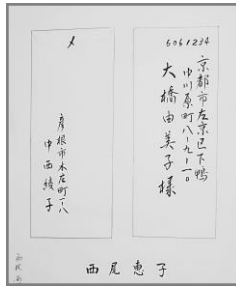 6061234
京都市左京区下鴨
中川原町八ー九ー一〇
大橋由美子様
〆
彦根市本庄町一ー八
中西績子
西尾恵子